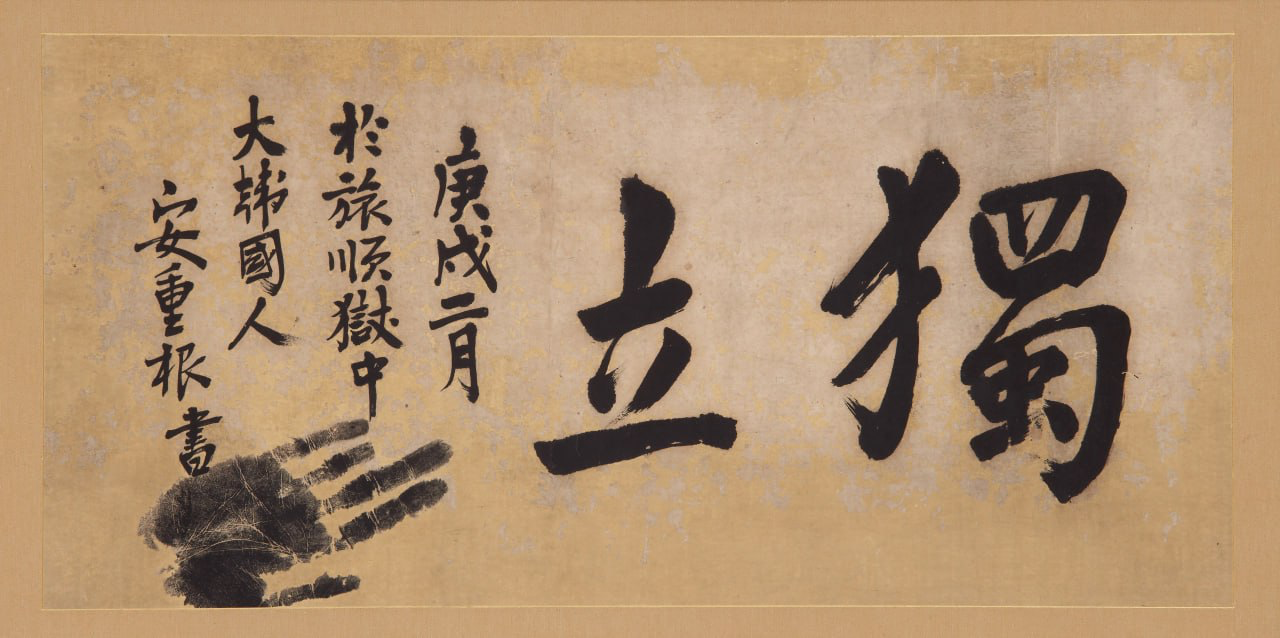 獨立
庚戌二月
於旅順獄中
大韓國人
安重根書